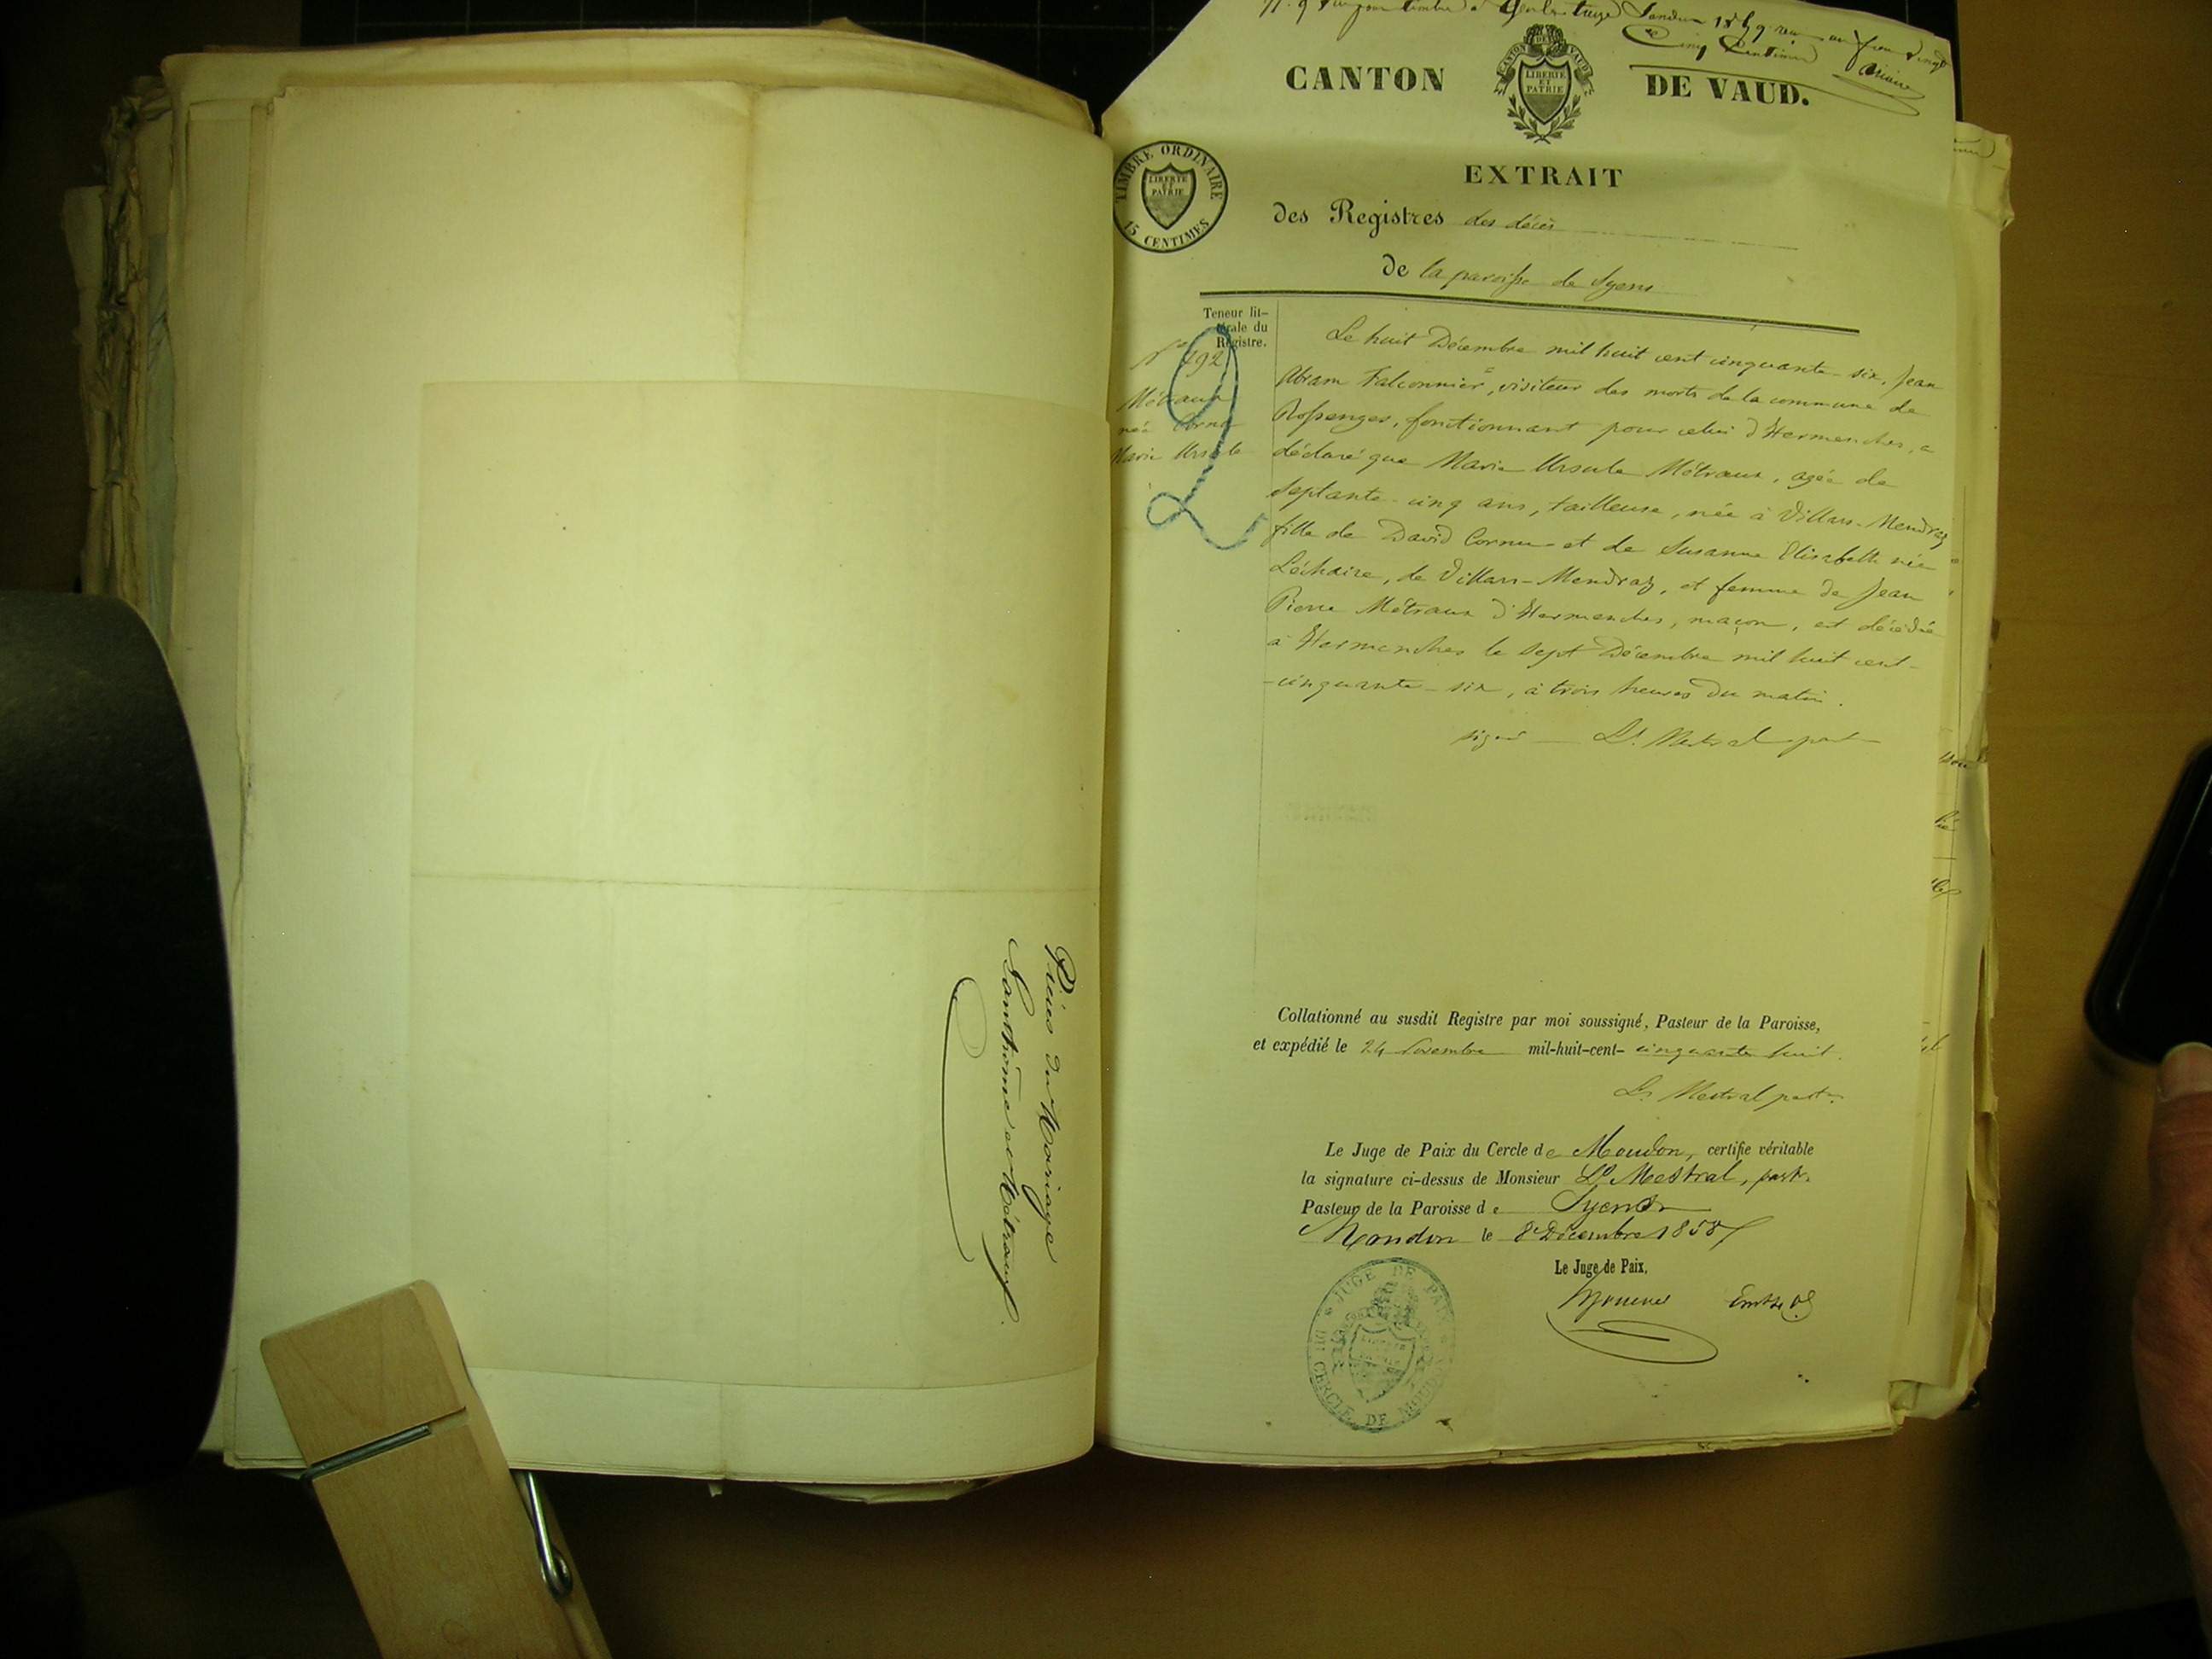 Pièces du Mariage
Lanthème et Métraux.
Vu pour timbre à
Cinq Centimes
CANTON DE VAUD.
CANTON DE VAUD
LIBERTÉ
ET
PATRIE
TIMBRE ORDINAIRE
LIBERTÉ
ET
PATRIE
15 CENTIMES
EXTRAIT
des Registres des décès
de la paroisse de Syens
Teneur lit-
térale du
Registre.
N° 292
Métraux
née Cornu
Marie Ursule
Le huit Décembre mil huit cent cinquante-six, Jean
Abram Falconnier, visiteur des morts de la commune de
Rossenges, fonctionnant pour celui d'Hermenches, a
déclaré que Marie Ursule Métraux, agée de
septante-cinq ans, tailleuse, née à Villars-Mendraz
fille de David Cornu et de Susanne Elisabeth née
Léchaire, de Villars-Mendraz, et femme de Jean
Pierre Métraux d'Hermenches, maçon, est décédée
à Hermenches le sept Décembre mil huit cent-
-cinquante-six, à trois heures du matin.
signé — Ls. Mestral past
Collationné au susdit Registre par moi soussigné, Pasteur de la Paroisse,
et expédié le 24 Novembre mil-huit-cent- cinquante huit.
Ls. Mestral past.
Le Juge de Paix du Cercle de Moudon, certifie véritable
la signature ci-dessus de Monsieur Ls Mestral, past.
Pasteur de la Paroisse de Syens
Moudon le 8 Décembre 1858
Le Juge de Paix,
JUGE DE PAIX
DU CERCLE DE MOUDON